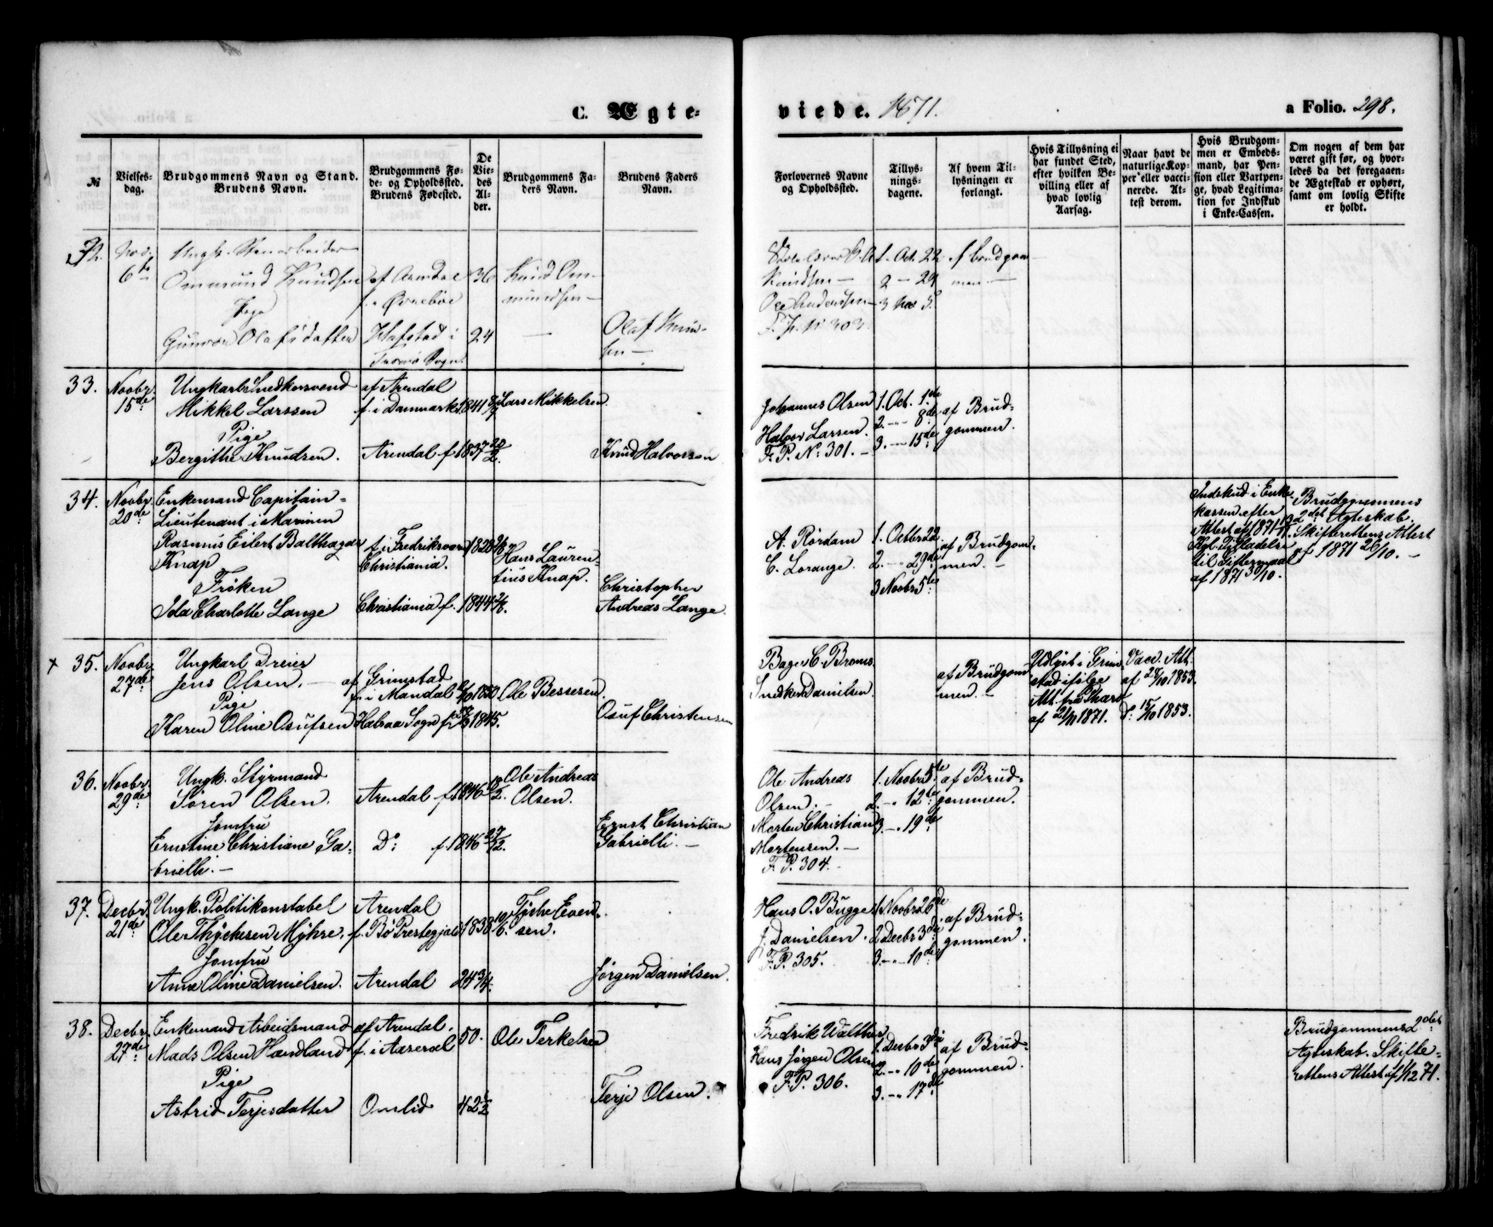 C. Ægte-
viede. 1871.
a Folio. 298.
№
Vielses-
dag.
Brudgommens Navn og Stand.
Brudens Navn.
Brudgommens Fø-
de- og Opholdssted.
Brudens Fødested.
De
Vie-
des
Al-
der.
Brudgommens Fa-
ders Navn.
Brudens Faders
Navn.
Forlovernes Navne
og Opholdssted.
Tillys-
nings-
dagene.
Af hvem Til-
lysningen er
forlangt.
Hvis Tillysning ei
har fundet Sted,
efter hvilken Be-
villing eller af
hvad lovlig
Aarsag.
Naar havt de
naturlige Kop-
per eller vacci-
nerede. At-
test derom.
Hvis Brudgom-
men er Embeds-
mand, har Pen-
sion eller Vartpen-
ge, hvad Legitima-
tion for Indskud
i Enke-Cassen.
Om nogen af dem har
været gift før, og hvor-
ledes da det foregaaen-
de Ægteskab er ophørt,
samt om lovlig Skifte
er holdt.
32.
6te
Ommund Knudsen
Pige
Gunvor Olafsdatter
af Arendal
f. i Øvrebøe
Hafstad i
Tromø Sogn
36
24
Knud Om-
mundsen
Olaf Knud-
sen
Knudsen
F. P. N 303.
1. Oct. 22
2 — 29
3 Nov 5.
af Brudgom-
men —
33. Novbr.
15de
Ungkarl Snedkersvend
Mikkel Larssen
Pige
Bergithe Knudsen.
af Arendal
f. i Danmark
Arendal f.
1841
1837 20/2.
Lars Mikkelsen
Knud Halvorsen
Johannes Olsen
Halvor Larsen.
F. P. N. 301. —
1. Oct. 1ste
2. — 8de
3. — 15de
af Brud-
gommen.
34. Novbr.
20de
Enkemand Capitain-
Lieutenant i Marinen
Rasmus Eilert Balthazar
Knap
Frøken
Ida Charlotte Lange
f. i Fredriksværn
Christiania.
Christiania f. 1844
Hans Lauren-
tius Knap.
Christopher
Andreas Lange.
A. Rørdam
C. Lorange.
1. Octbr 22
2. — 29de
3 Novbr 5te
af Brudgom-
men. —
Indskud i Enke-
kassen efter
Attest af 1871
Kgl. Tilladelse
til Giftermaal
af 1871 30/10.
Brudgommens
2det Ægteskab.
Skifterettens Attest
af 1871 26/10. —
x 35. Novbr.
27de
Ungkarl Dreier
Jens Olsen. —
Pige
Karen Oline Osufsen
af Grimstad
f. i Mandal
Holtaa Sogn f.
1845.
Ole Bessesen.
Osuf Christensen
Bager C. Broms.
Snedker Danielsen.
af Brudgom-
men. —
Udlyst i Grim-
stad ifølge
Att. fra
af 21/11 1871.
Vacc. Att.
af 27/10 1853.
D: 15/10 1853.
36. Novbr.
29de
Ungk. Styrmand
Søren Olsen.
Jomfru
Ernstine Christiane Ga-
brielli. —
Arendal f. 1846
Do: f. 1846 27/12.
Ole Andreas
Olsen.
Ernst Christian
Gabrielli. —
Ole Andreas
Olsen. —
Morten Christian
Mortensen. —
F. P. 304. —
1. Novbr 5te
2. — 12te
3. — 19de
af Brud-
gommen.
37. Decbr.
21de
Ungk. Politikonstabel
Ole Thykesen Myhre.
Jomfru
Anne Oline Danielsen.
Arendal
f. Bø Prestegjeld
Arendal
1838
24 3/4.
Tyche Even-
sen.
Jørgen Danielsen.
Hans O. Bugge
J. Danielsen.
F. P. 305.
1. Novbr 26de
2 Decbr 3de
3. — 10de
af Brud-
gommen.
38. Decbr.
27de
Enkemand Arbeidsmand
Mads Olsen Handland
Pige
Astrid Terjesdatter
af Arendal.
f. i Aaseral
Omlid
50.
42 1/2
Ole Terkelsen
Terje Olsen.
Fredrik Walther
Hans Jørgen Olsen
F. P. 306.
1. Decbr 3die
2. — 10de
3. — 17de
af Brud-
gommen.
Brudgommens 2det
Ægteskab. Skifte-
rettens Attest af 1/12 71.